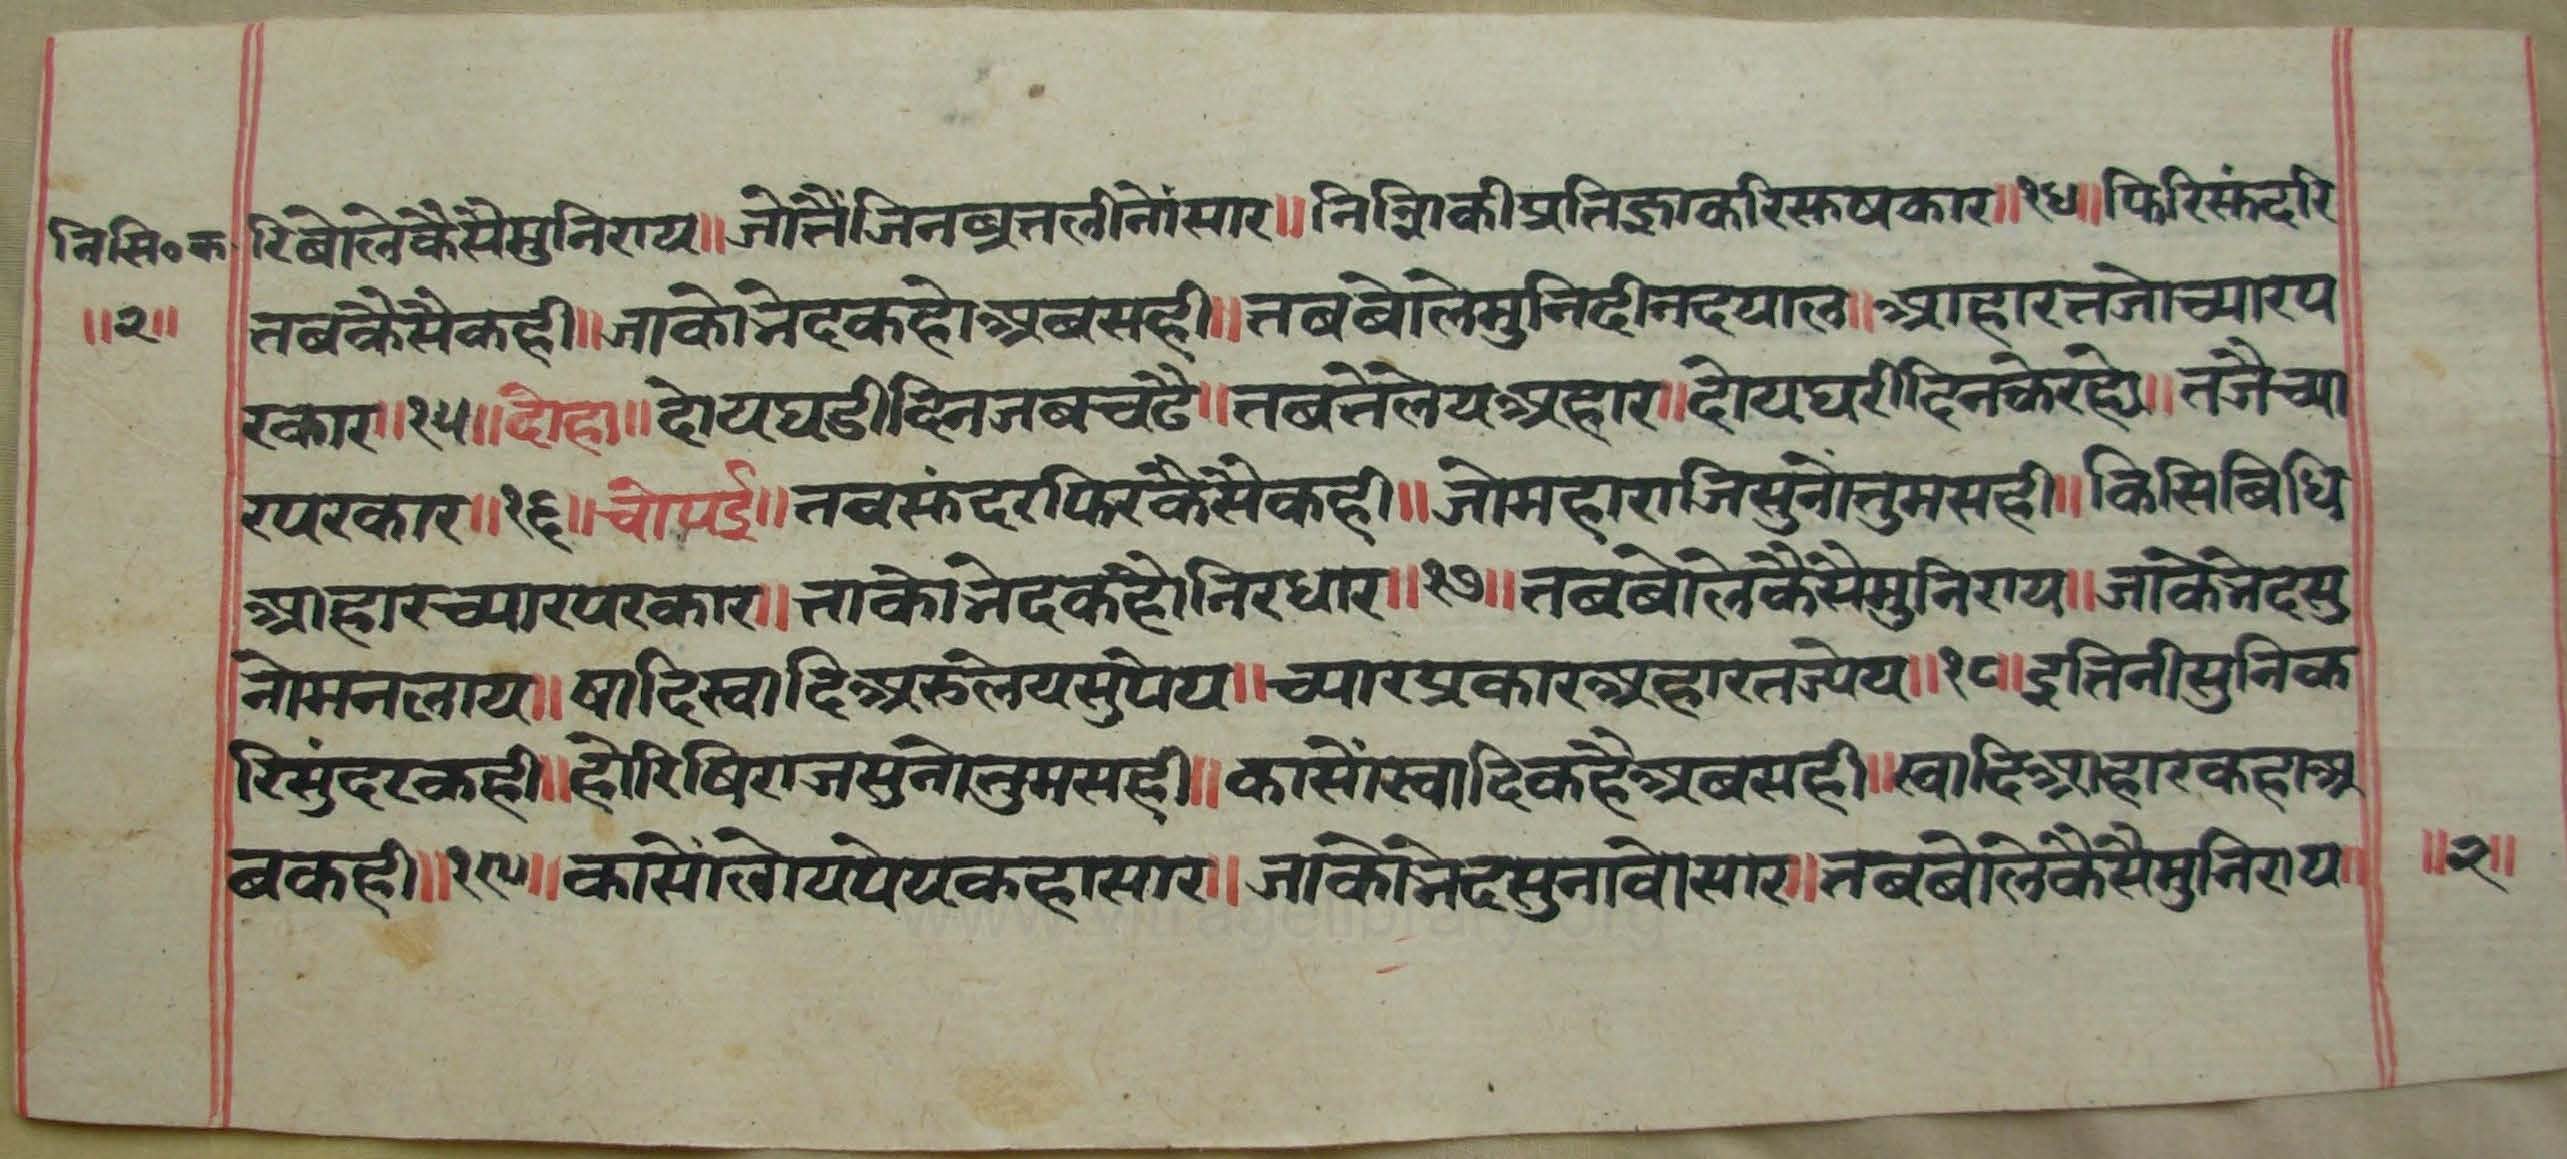 निसि॰क
॥२॥
रिबोलेकैसैमुनिराय॥जोतैंजिनब्रतलीनोंसार॥निस्रिकीप्रतिज्ञाकरिस्रुषकार॥१४॥फिरिस्रुंदरि
तबकैसैकही॥जाकोभेदकहोअबसही॥तबबोलेमुनिदीनदयाल॥आहारतजोच्यारप
रकार॥१५॥दोहा॥दोयघडीदिनजबचढै॥तबतेंलेयअहार॥दोयघरीदिनकेरह्ये॥तजैच्या
रपरकार॥१६॥चोपई॥तवस्रुंदरफिरकैसैकही॥जोमहाराजिसुनोंतुमसही॥किसिबिधि
आहारच्यारपरकार॥ताकोभेदकहोंनिरधार॥१७॥तबबोलेकैसैमुनिराय॥जाकेभेदसु
नोमनलाय॥षादिस्वादिअरुलेयसुपेय॥च्यारप्रकारअहारतज्येय॥१८॥इतिनीसुनिक
रिसुंदरकही॥होरिषिराजसुनोतुमसही॥कासोंस्वादिकहैअबसही॥स्वादिआहारकहाअ
बकही॥१९॥कासोंलोयपेयकहासार॥जाकोभेदसुनावोसार॥तबबोलेकैसैमुनिराय॥
॥२॥